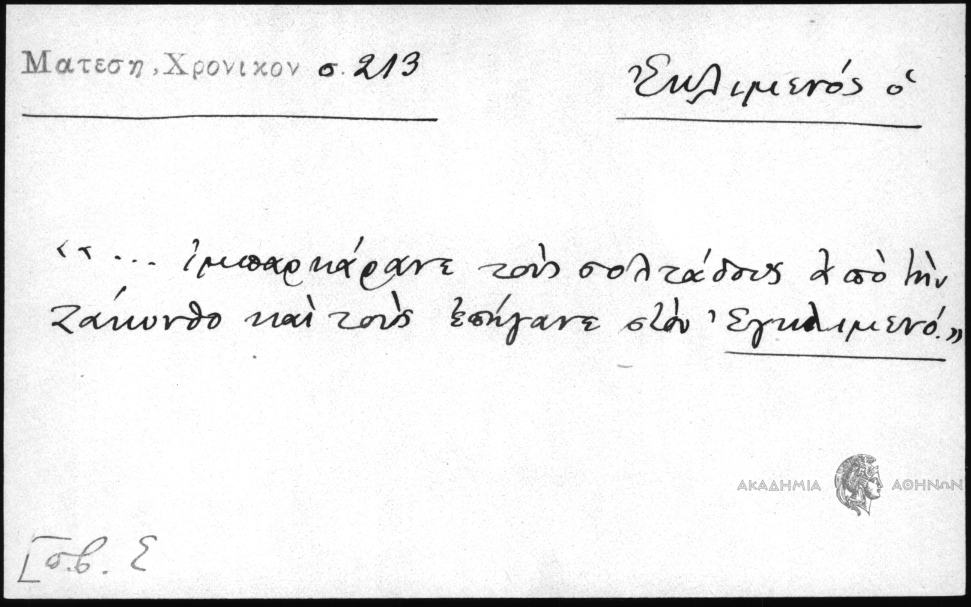 Ματεση, Χρονικον σ. 213
Ἐκλιμενός ὁ
«... ἰμπαρκάρανε τοὺς σολτάδους ἀπὸ τὴν
Ζάκυνθο καὶ τοὺς ἐπήγανε στὸν Ἐγκλιμενό.»
ΑΚΑΔΗΜΙΑ ΑΘΗΝΩΝ
[π.β. Σ